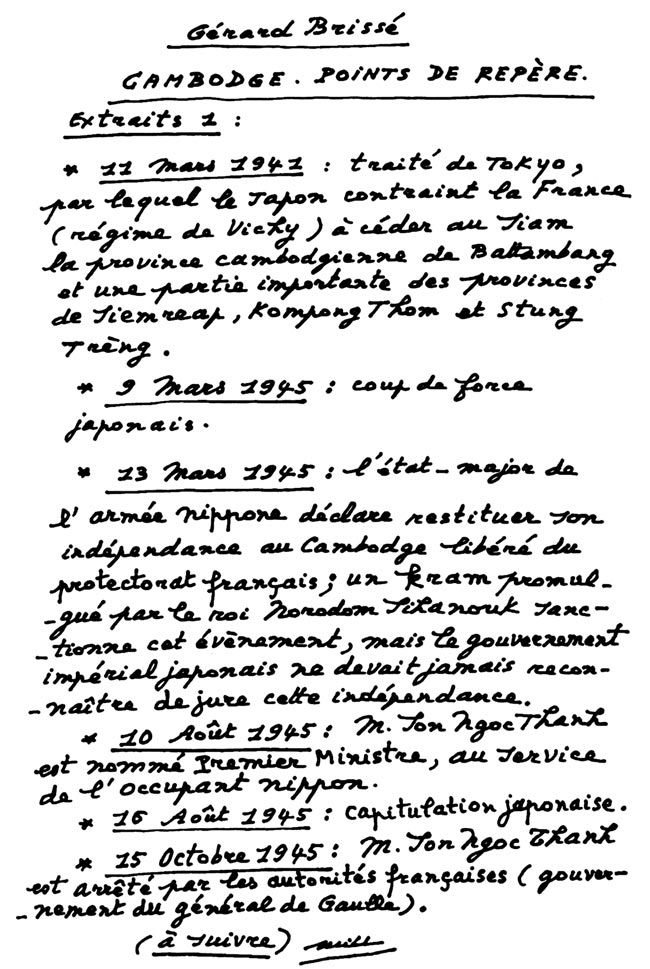 Gérard Brissé
CAMBODGE. POINTS DE REPÈRE.
Extraits 1 :
* 11 Mars 1941 : traité de Tokyo,
par lequel le Japon contraint la France
(régime de Vichy) à céder au Siam
la province cambodgienne de Battambang
et une partie importante des provinces
de Siemreap, Kompong Thom et Stung
Trèng.
* 9 Mars 1945 : coup de force
japonais.
* 13 Mars 1945 : l'état-major de
l'armée nippone déclare restituer son
indépendance au Cambodge libéré du
protectorat français ; un kram promul-
-gué par le roi Norodom Sihanouk sanc-
-tionne cet évènement, mais le gouvernement
impérial japonais ne devait jamais recon-
-naître de jure cette indépendance.
* 10 Août 1945 : M. Son Ngoc Thanh
est nommé Premier Ministre, au service
de l'occupant nippon.
* 16 Août 1945 : Capitulation japonaise.
* 15 Octobre 1945 : M. Son Ngoc Thanh
est arrêté par les autorités françaises (gouver-
-nement du général de Gaulle).
(à suivre)